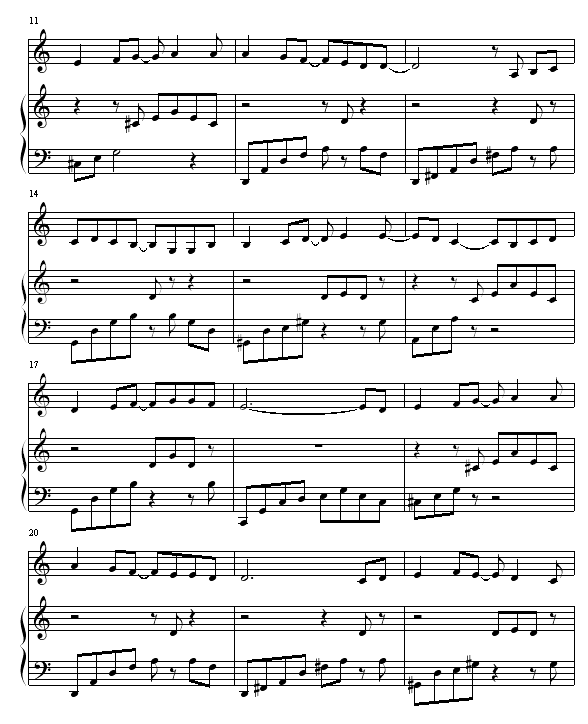 11
14
17
20